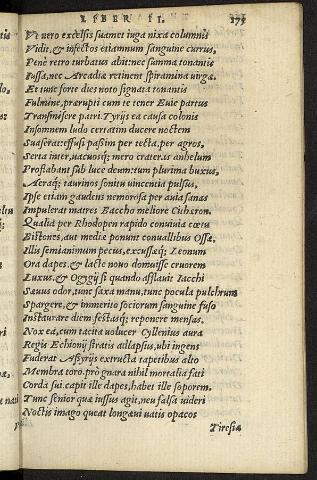 LIBER II. 175
Vt uero excelsis suamet iuga nixa columnis
Vidit, & infectos etiamnum sanguine currus,
Penè retro turbatus abit: nec summa tonantis
Iussa, nec Arcadiæ retinent spiramina uirgæ.
Et tunc forte dies noto signata tonantis
Fulmine, prærupti cum te tener Euie partus
Transmisere patri. Tyrijs ea causa colonis
Insomnem ludo certatim ducere noctem
Suaserat: effusi passim per tecta, per agros,
Serta inter, uacuosq; mero crateras anhelum
Proflabant sub luce deum: tum plurima buxus,
Aeraq; taurinos sonitu uincentia pulsus,
Ipse etiam gaudens nemorosa per auia sanas
Impulerat matres Baccho meliore Cithæron.
Qualia per Rhodopen rapido conuiuia cœtu
Bistones, aut mediæ ponunt conuallibus Ossæ,
Illis semianimum pecus, excussæq; Leonum
Ora dapes, & lacte nouo domuisse cruorem
Luxus, & Ogygij si quando afflauit Iacchi
Sæuus odor, tunc saxa manu, tunc pocula pulchrum
Spargere, & immerito sociorum sanguine fuso
Instaurare diem, festasq; reponere mensas.
Nox ea, cum tacita uolucer Cyllenius aura
Regis Echionij stratis adlapsus, ubi ingens
Fuderat Assyrijs extructa tapetibus alto
Membra toro. prò gnara nihil mortalia fati
Corda sui. capit ille dapes, habet ille soporem.
Tunc senior quæ iussus agit, neu falsa uideri
Noctis imago queat longæui uatis opacos
Tiresiæ